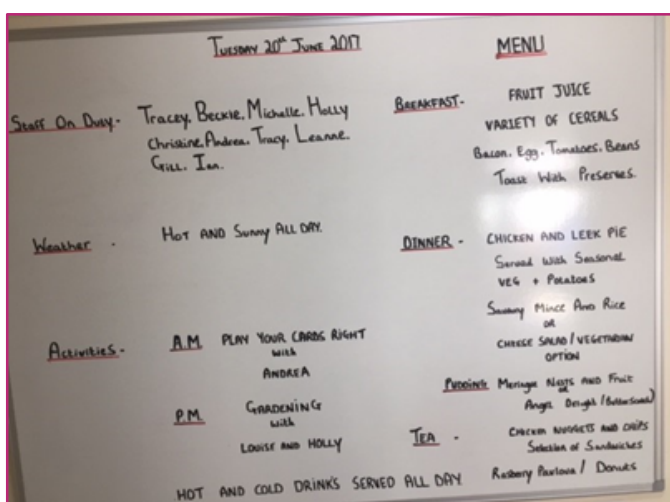 TUESDAY 20th JUNE 2017
Staff On Duty - Tracey. Beckie. Michelle. Holly
Christine. Andrea. Tracy. Leanne.
Gill. Ian.
Weather - HOT AND Sunny ALL DAY.
Activities - A.M. PLAY YOUR CARDS RIGHT
with
ANDREA
P.M. GARDENING
with
LOUISE AND HOLLY
MENU
BREAKFAST - FRUIT JUICE
VARIETY OF CEREALS
Bacon. Egg. Tomatoes. Beans
Toast With Preserves.
DINNER - CHICKEN AND LEEK PIE
Served With Seasonal
VEG + Potatoes
Savoury Mince And Rice
OR
CHEESE SALAD / VEGETARIAN
OPTION
PUDDING Meringue Nests AND Fruit
OR
Angel Delight (Butterscotch)
TEA - CHICKEN NUGGETS AND CHIPS
Selection of Sandwiches
Rasberry Pavlova / Donuts
HOT AND COLD DRINK'S SERVED ALL DAY.